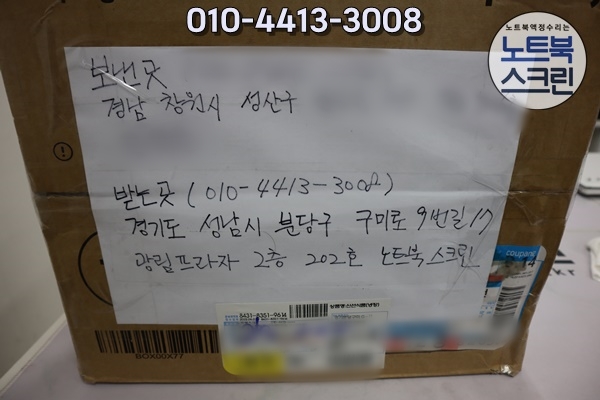 010-4413-3008
노트북액정수리는
노트북
스크린
보낸곳
경남 창원시 성산구
받는곳 (010-4413-3008)
경기도 성남시 분당구 구미로 9번길 17
광림프라자 2층 202호 노트북스크린
coupang
8431-8351-9614
BOX00X77